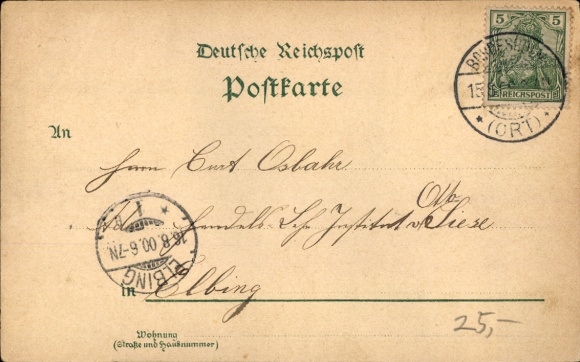 Deutsche Reichspost
Postkarte
5 5
REICHSPOST
15
(ORT)
An
Herrn Curt Osbahr
Otto
Handels-Lehr Institut v. Siese
16.8.00.6-7N.
ELBING
in Elbing
Wohnung
(Straße und Hausnummer)
25,-